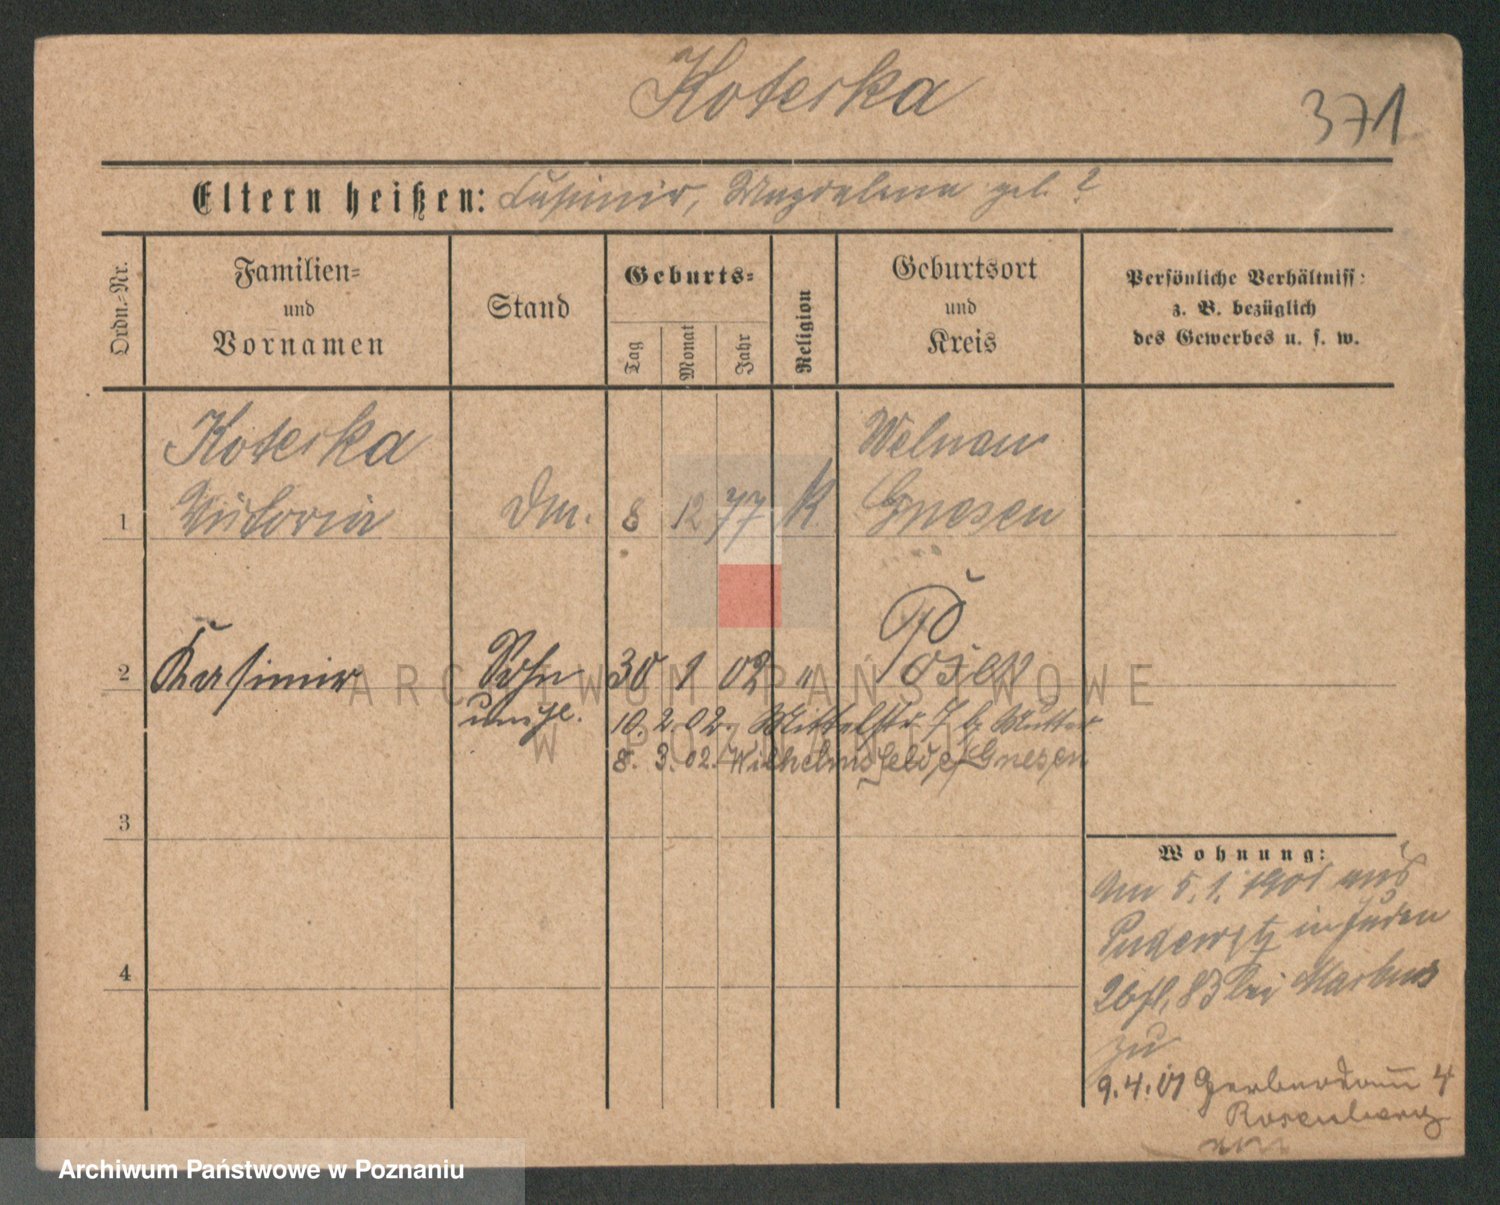 Koterka
371
Eltern heißen: Casimir, Magdalena geb. ?
Ordn.-Nr.
Familien-
und
Vornamen
Stand
Geburts-
Tag
Monat
Jahr
Religion
Geburtsort
und
Kreis
Persönliche Verhältniss:
z. B. bezüglich
des Gewerbes u. s. w.
Koterka
Welnau
1 Victoria Dm. 8 12 77 K Gnesen
2 Kasimir Sohn 30 1 02 " Posen
unehl. 10. 2. 02. Mittelstr. 7 b Mutter
8. 3. 02. Wilhelmsfelde Gnesen
3
Wohnung:
Am 5. 1. 1901 aus
Pudewitz in Juden
83 bei Markus
4
zu
9. 4. 01 Gerberdamm 4
Rosenberg
ARCHIWUM PAŃSTWOWE
W POZNANIU
Archiwum Państwowe w Poznaniu